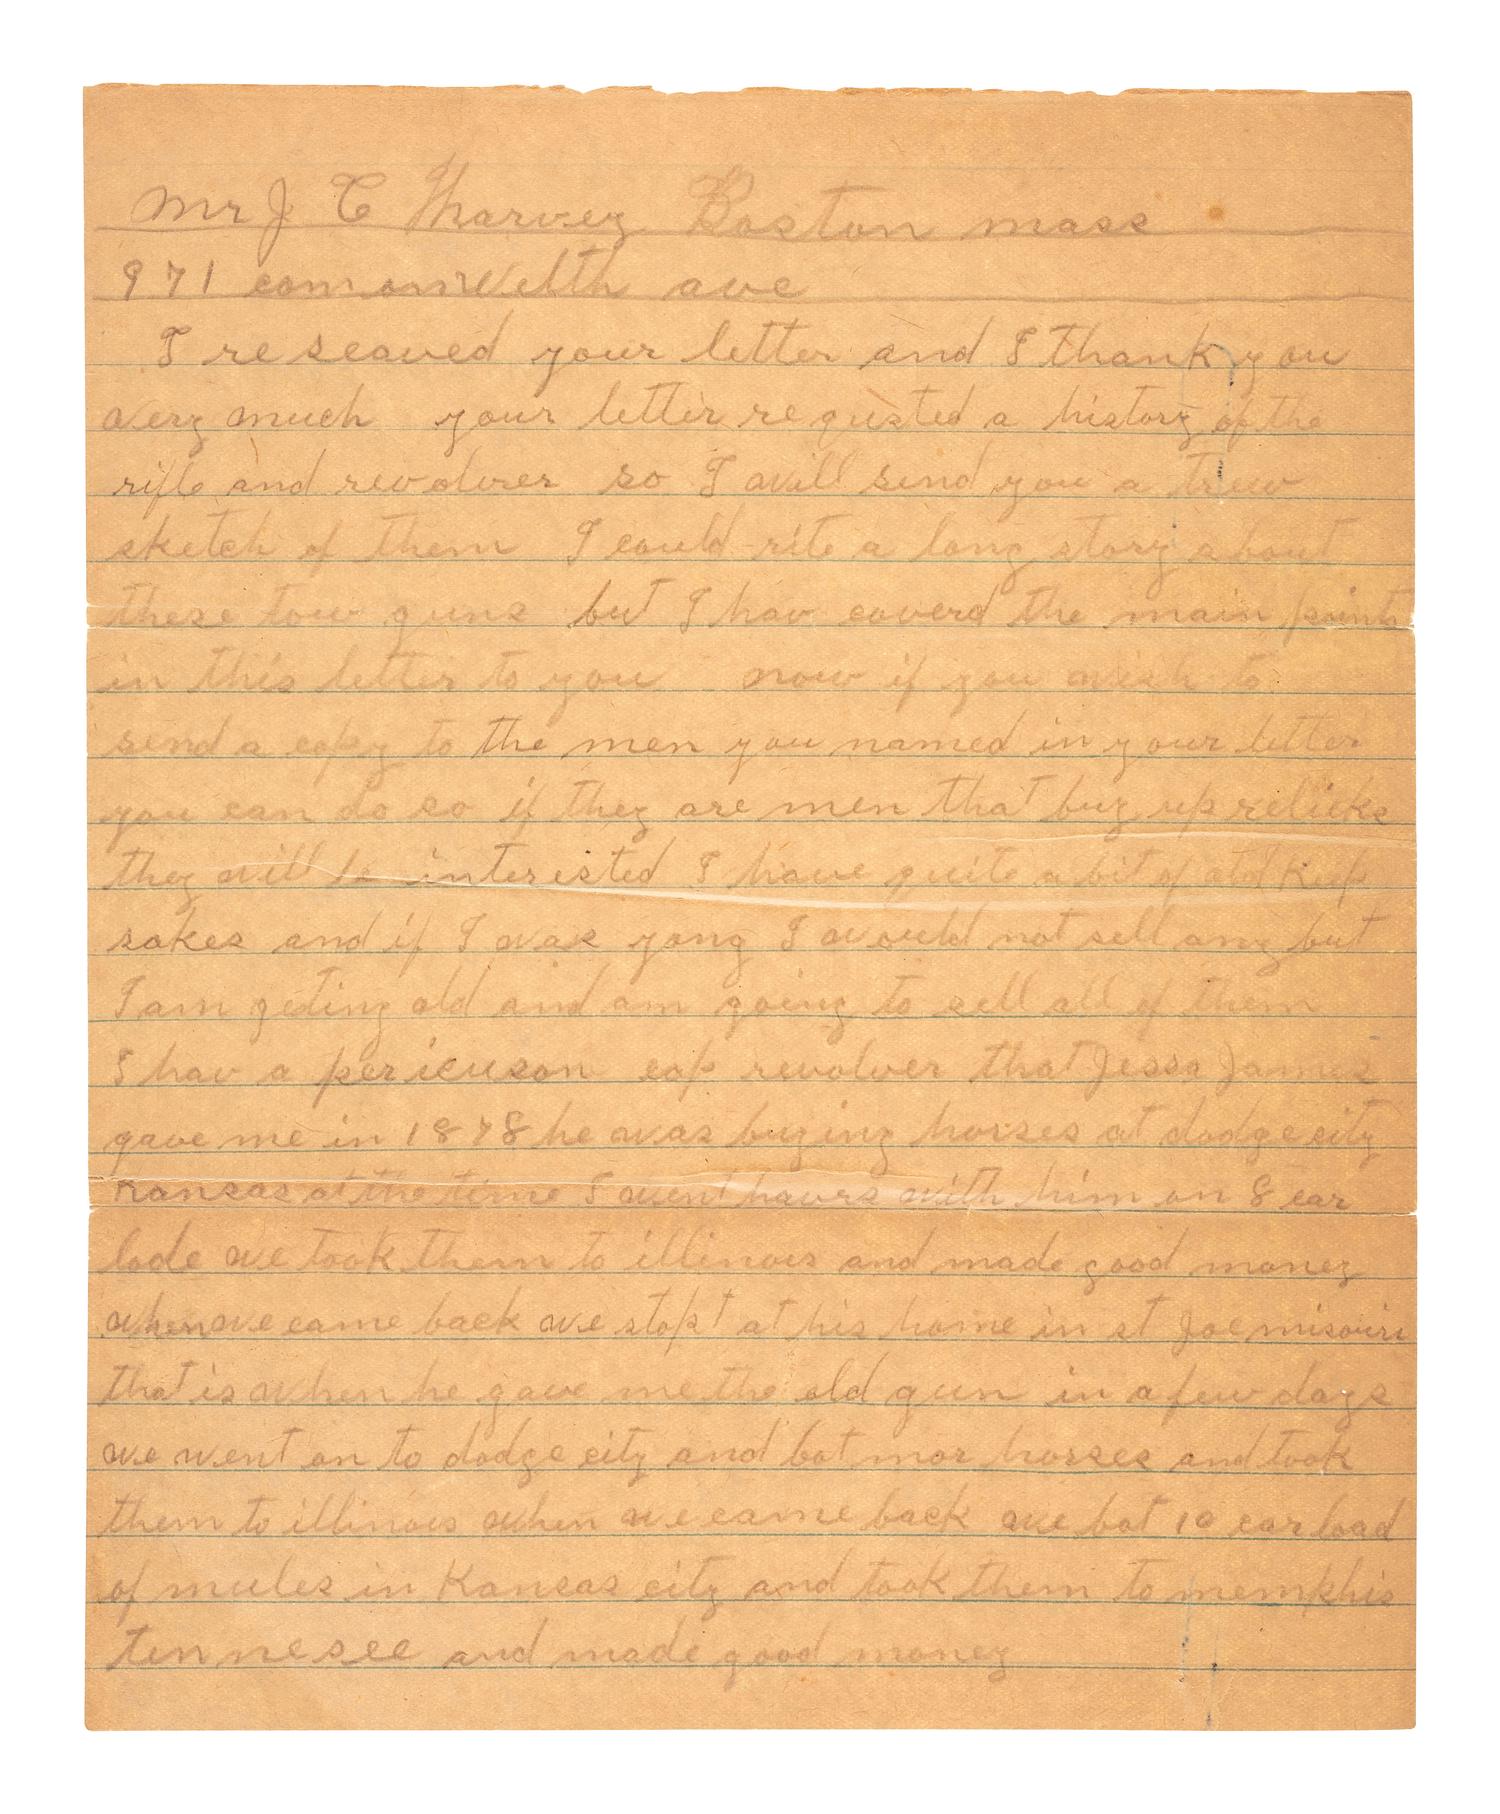 Mr J C Harvey Boston mass
971 comonwelth ave
I reseaved your letter and I thank you
very much your letter requsted a history of the
rifle and revolver so I will send you a trew
sketch of them I could rite a long story about
these tow guns but I hav coverd the main points
in this letter to you now if you wish to
send a copy to the men you named in your letter
you can do so if they are men that buy up relicks
they will be interested I have quite a bit of old keep
sakes and if I was yong I would not sell any but
I am geting old and am going to sell all of them
I hav a pericuson cap revolver that Jessa James
gave me in 1878 he was buying horses at dodge city
Kansas at the time I went havrs with him on 8 car
lode we took them to illinois and made good money
when we came back we stopt at his home in st Joe misouri
that is when he gave me the old gun in a few days
we went on to dodge city and bot mor horses and took
them to illinois when we came back we bot 10 car load
of mules in Kansas city and took them to memphis
tennesee and made good money